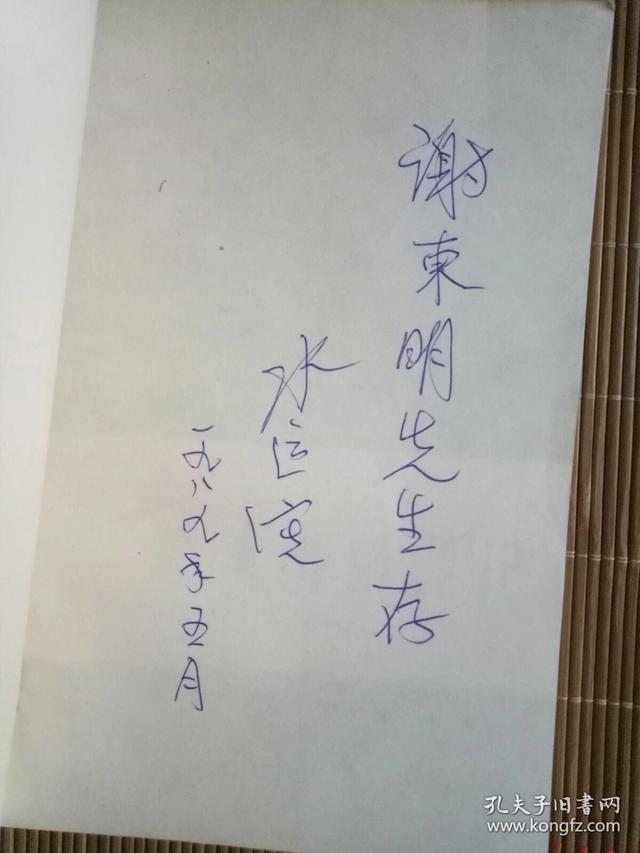 謝東明先生存
水运宪
一九八九年五月
孔夫子旧书网
www.kongfz.com